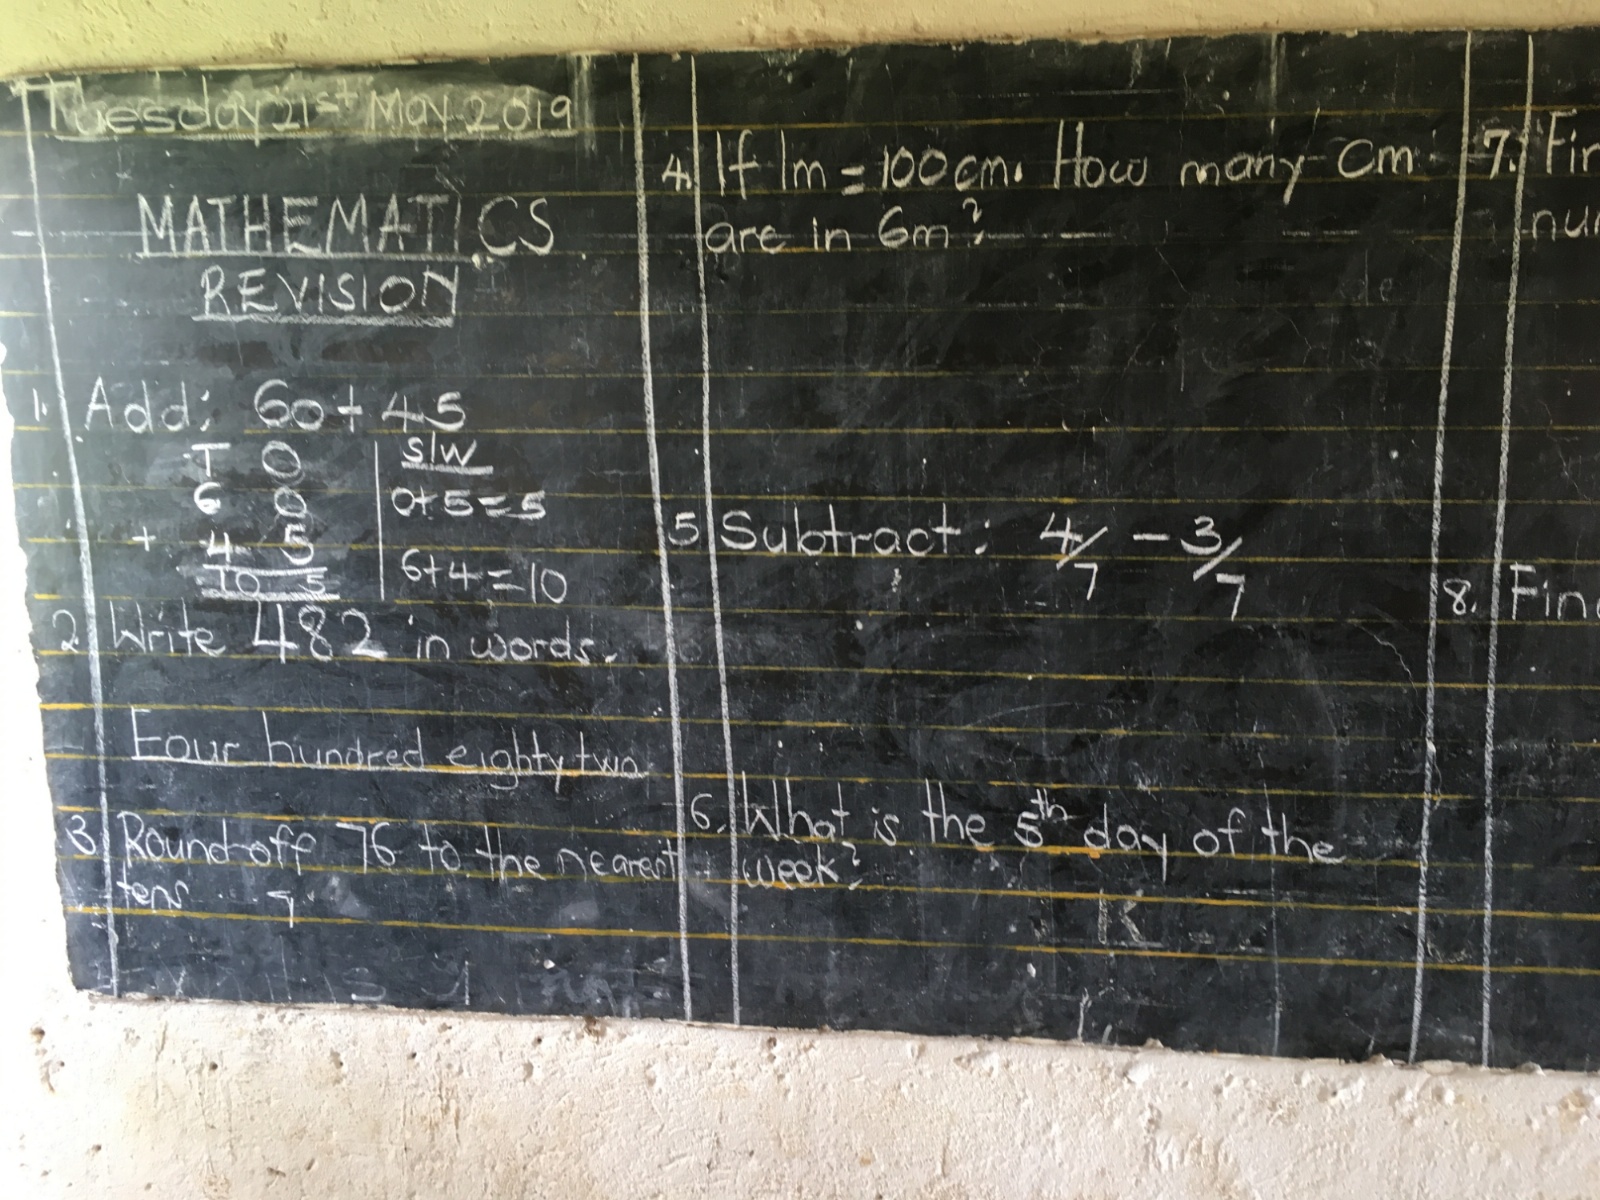 Tuesday 21st May 2019
MATHEMATICS
REVISION
1. Add: 60 + 45
T O
6 0
+ 4 5
10 5
S/W
0+5=5
6+4=10
2 Write 482 in words.
Four hundred eighty two
3 Round off 76 to the nearest
tens
4. If 1m = 100cm. How many cm
are in 6m?
5 Subtract: 4/7 - 3/7
6. What is the 5th day of the
week?
K
7.
8.